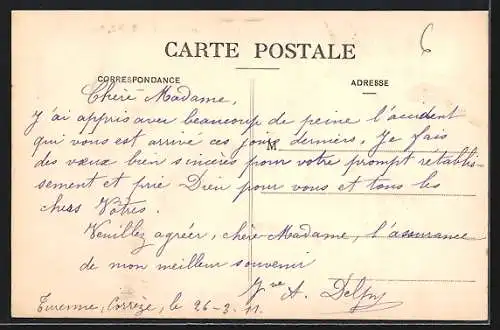 6
CARTE POSTALE
CORRESPONDANCE
ADRESSE
Chère Madame,
J'ai appris avec beaucoup de peine l'accident
qui vous est arrivé ces jours derniers. Je fais
M
des vœux bien sincères pour votre prompt rétablis-
sement et prie Dieu pour vous et tous les
chers Vôtres.
Veuillez agréer, chère Madame, l'assurance
de mon meilleur souvenir
Vve A. Delpy
Turenne, Corrèze, le 26-3-11.